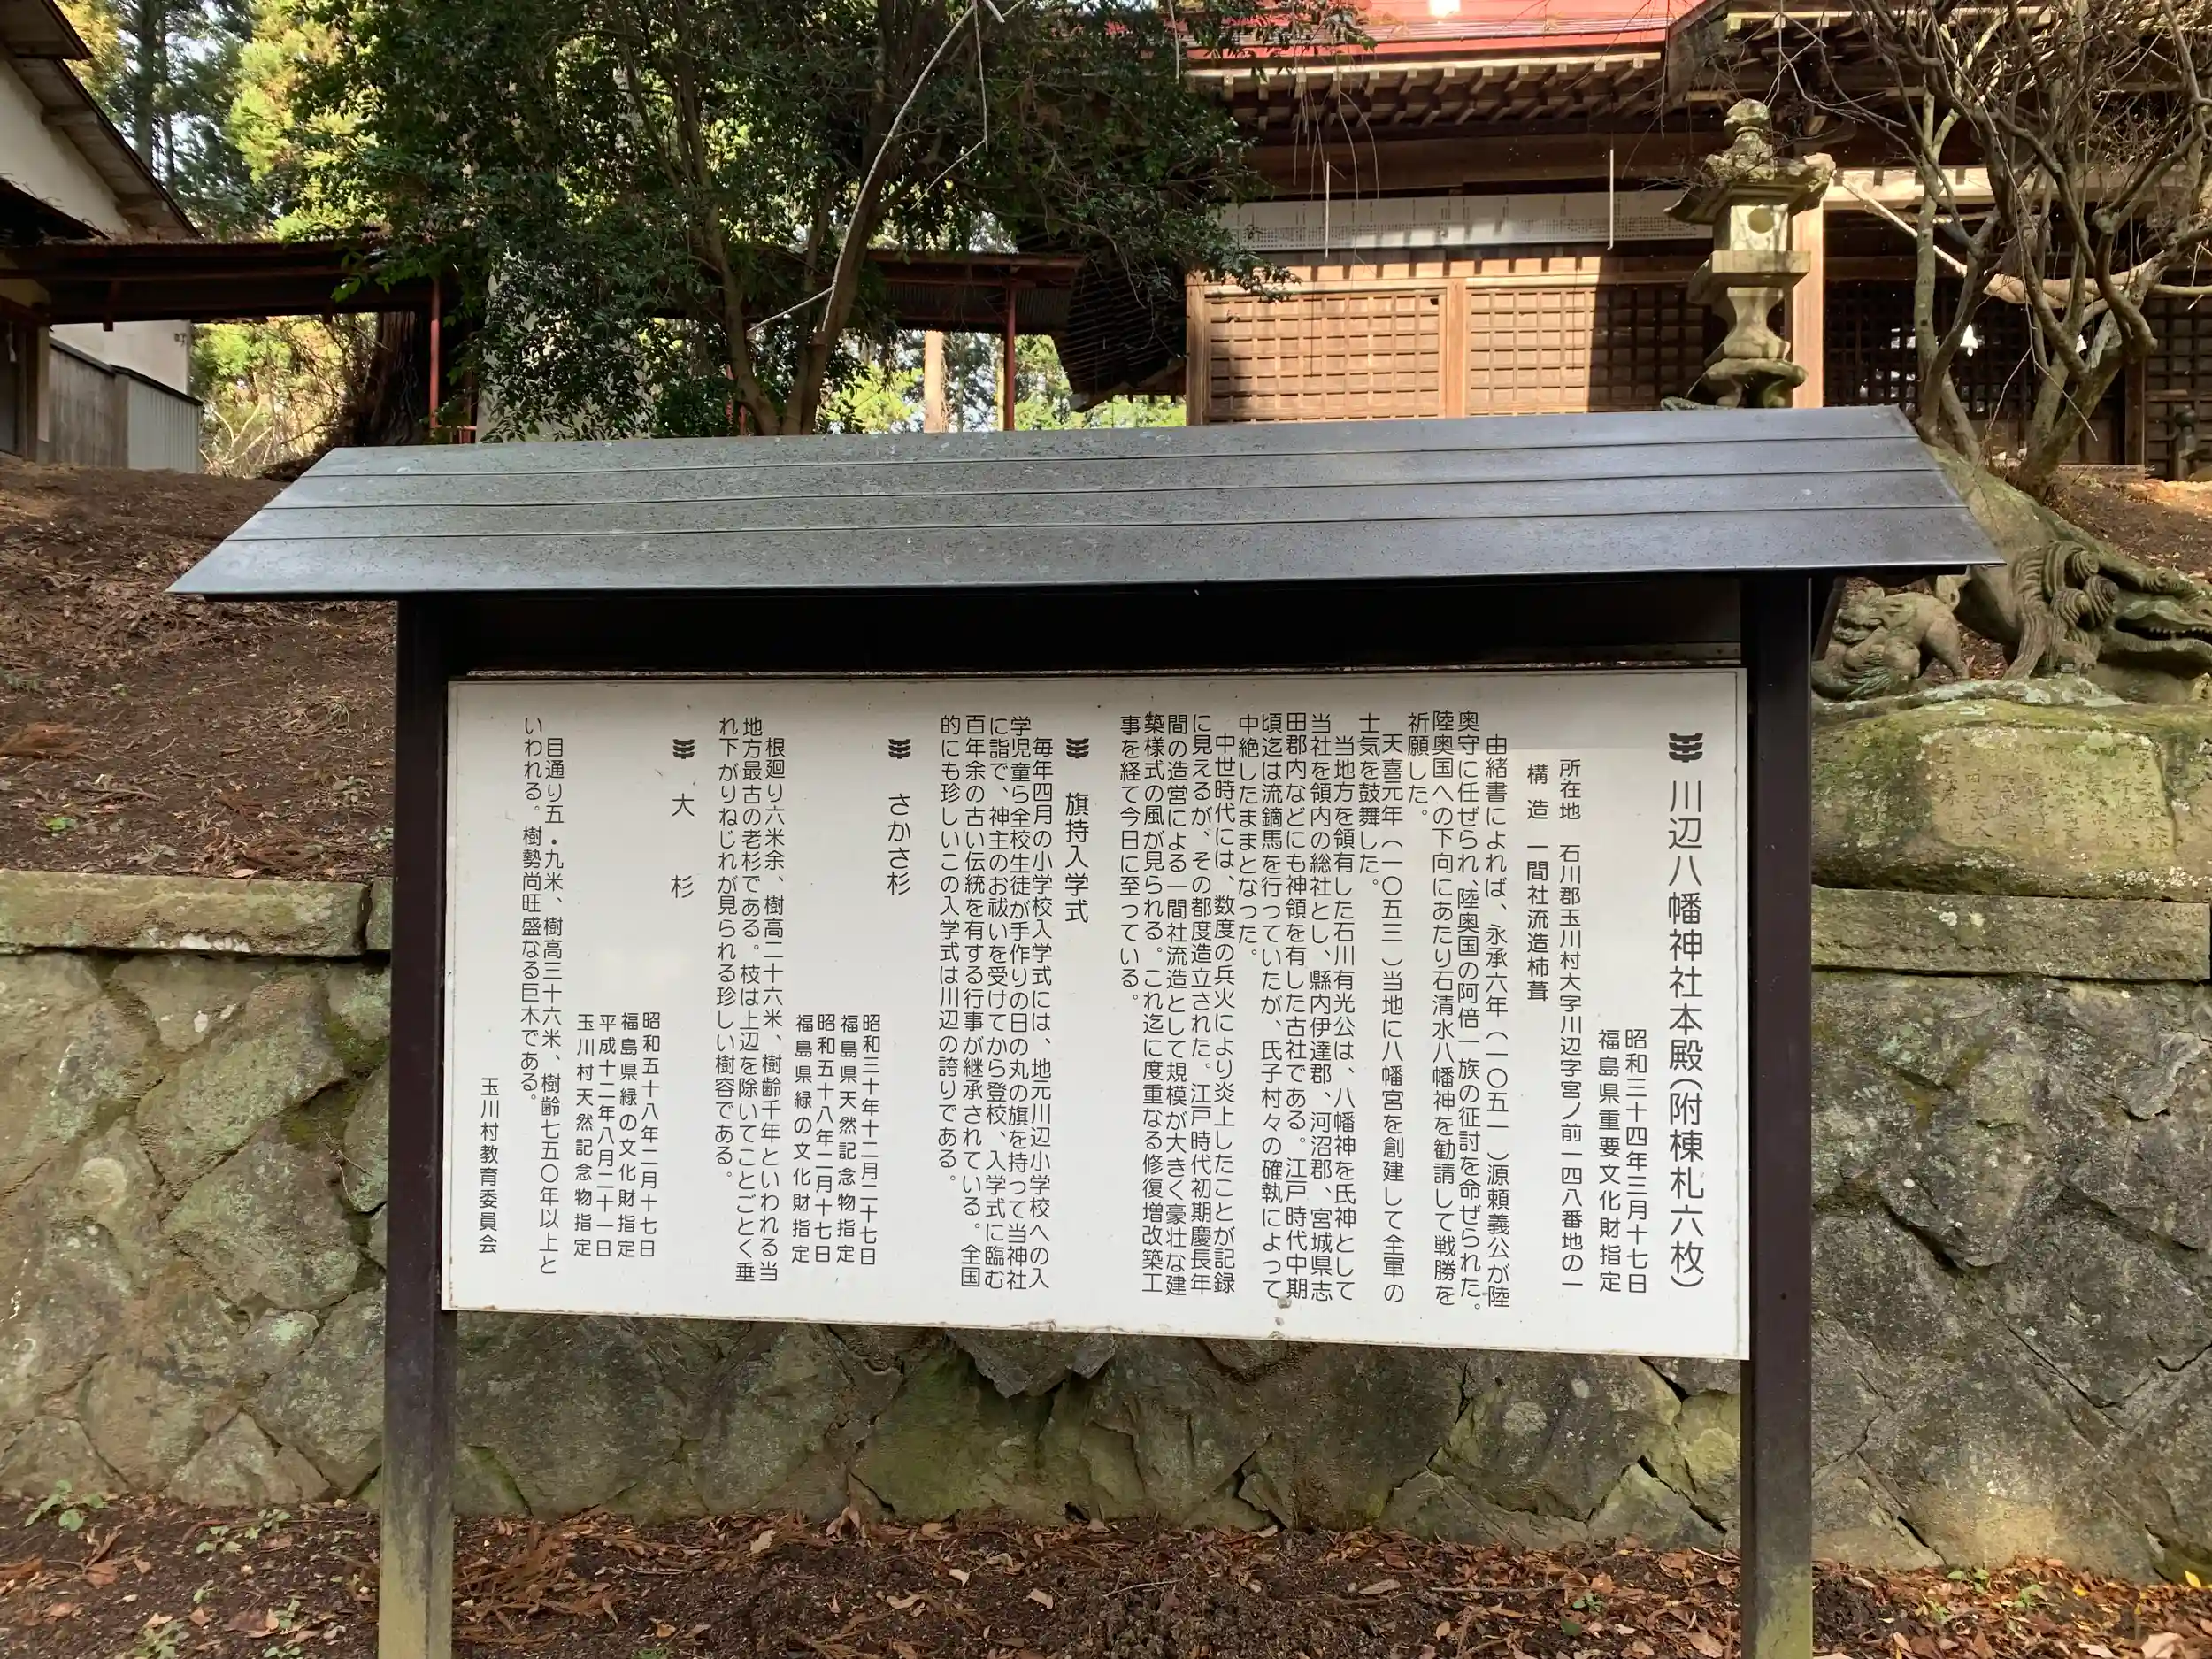 川辺八幡神社本殿(附棟札六枚)
昭和三十四年三月十七日
福島県重要文化財指定
所在地 石川郡玉川村大字川辺字宮ノ前一四八番地の一
構造 一間社流造柿葺
由緒書によれば、永承六年(一〇五一)源頼義公が陸
奥守に任ぜられ、陸奥国の阿倍一族の征討を命ぜられた。
陸奥国への下向にあたり石清水八幡神を勧請して戦勝を
祈願した。
天喜元年(一〇五三)当地に八幡宮を創建して全軍の
士気を鼓舞した。
当地方を領有した石川有光公は、八幡神を氏神として
当社を領内の総社とし、縣内伊達郡、河沼郡、宮城県志
田郡内などにも神領を有した古社である。江戸時代中期
頃迄は流鏑馬を行っていたが、氏子村々の確執によって
中絶したままとなった。
中世時代には、数度の兵火により炎上したことが記録
に見えるが、その都度造立された。江戸時代初期慶長年
間の造営による一間社流造として規模が大きく豪壮な建
築様式の風が見られる。これ迄に度重なる修復増改築工
事を経て今日に至っている。
旗持入学式
毎年四月の小学校入学式には、地元川辺小学校への入
学児童ら全校生徒が手作りの日の丸の旗を持って当神社
に詣で、神主のお祓いを受けてから登校、入学式に臨む
百年余の古い伝統を有する行事が継承されている。全国
的にも珍しいこの入学式は川辺の誇りである。
さかさ杉
昭和三十年十二月二十七日
福島県天然記念物指定
昭和五十八年二月十七日
福島県緑の文化財指定
根廻り六米余、樹高二十六米、樹齢千年といわれる当
地方最古の老杉である。枝は上辺を除いてことごとく垂
れ下がりねじれが見られる珍しい樹容である。
大杉
昭和五十八年二月十七日
福島県緑の文化財指定
平成十二年八月二十一日
玉川村天然記念物指定
目通り五・九米、樹高三十六米、樹齢七五〇年以上と
いわれる。樹勢尚旺盛なる巨木である。
玉川村教育委員会